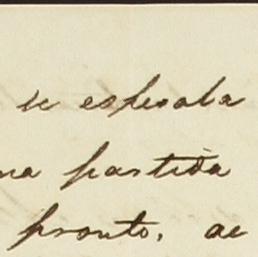 se esperaba
na partida
pronto, de